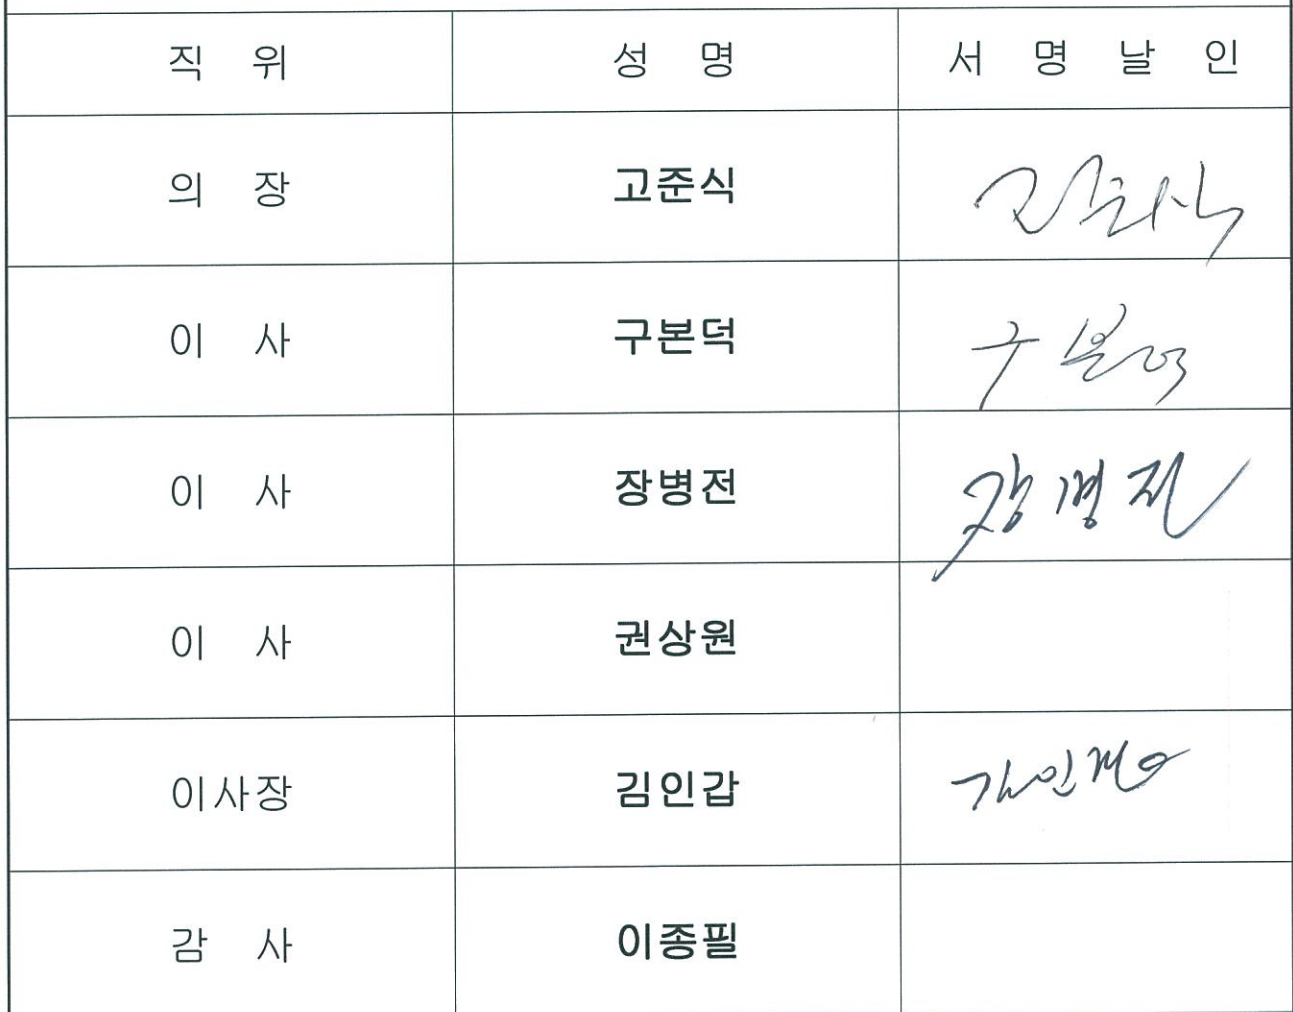 직 위 성 명 서 명 날 인
의 장 고준식 고준식
이 사 구본덕 구본덕
이 사 장병전 장병전
이 사 권상원
이사장 김인갑 김인갑
감 사 이종필